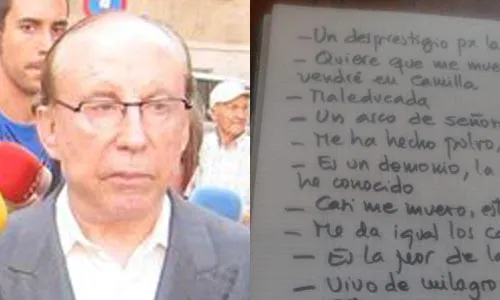 - Un desprestigio pa la
- Quiere que me mue
vendré en camilla
- Maleducada
- Un asco de señor
- Me ha hecho polvo,
- Es un demonio, la
he conocido
- Casi me muero, es
- Me da igual los c
- Es la peor de la
- Vivo de milagro